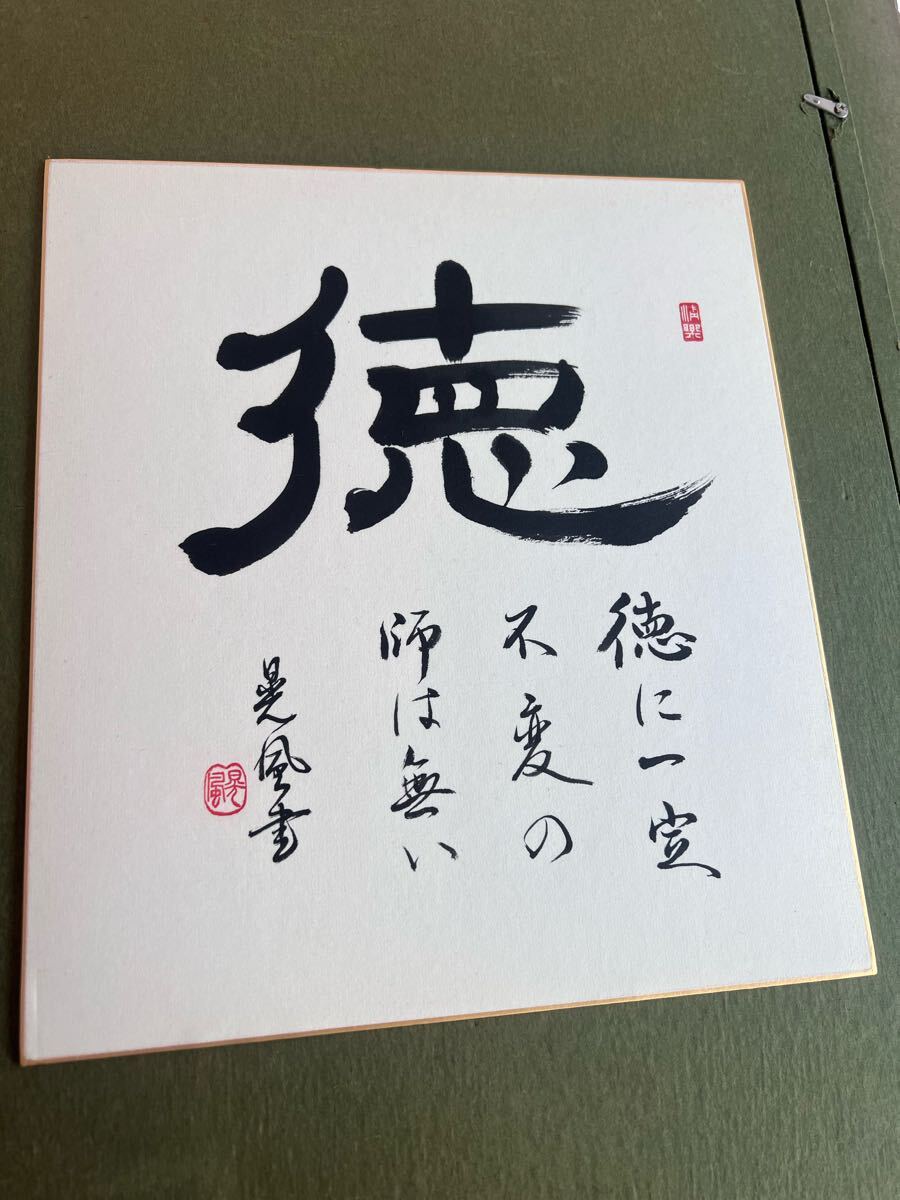 徳
徳に一定
不変の
師は無い
晃風書
晃風